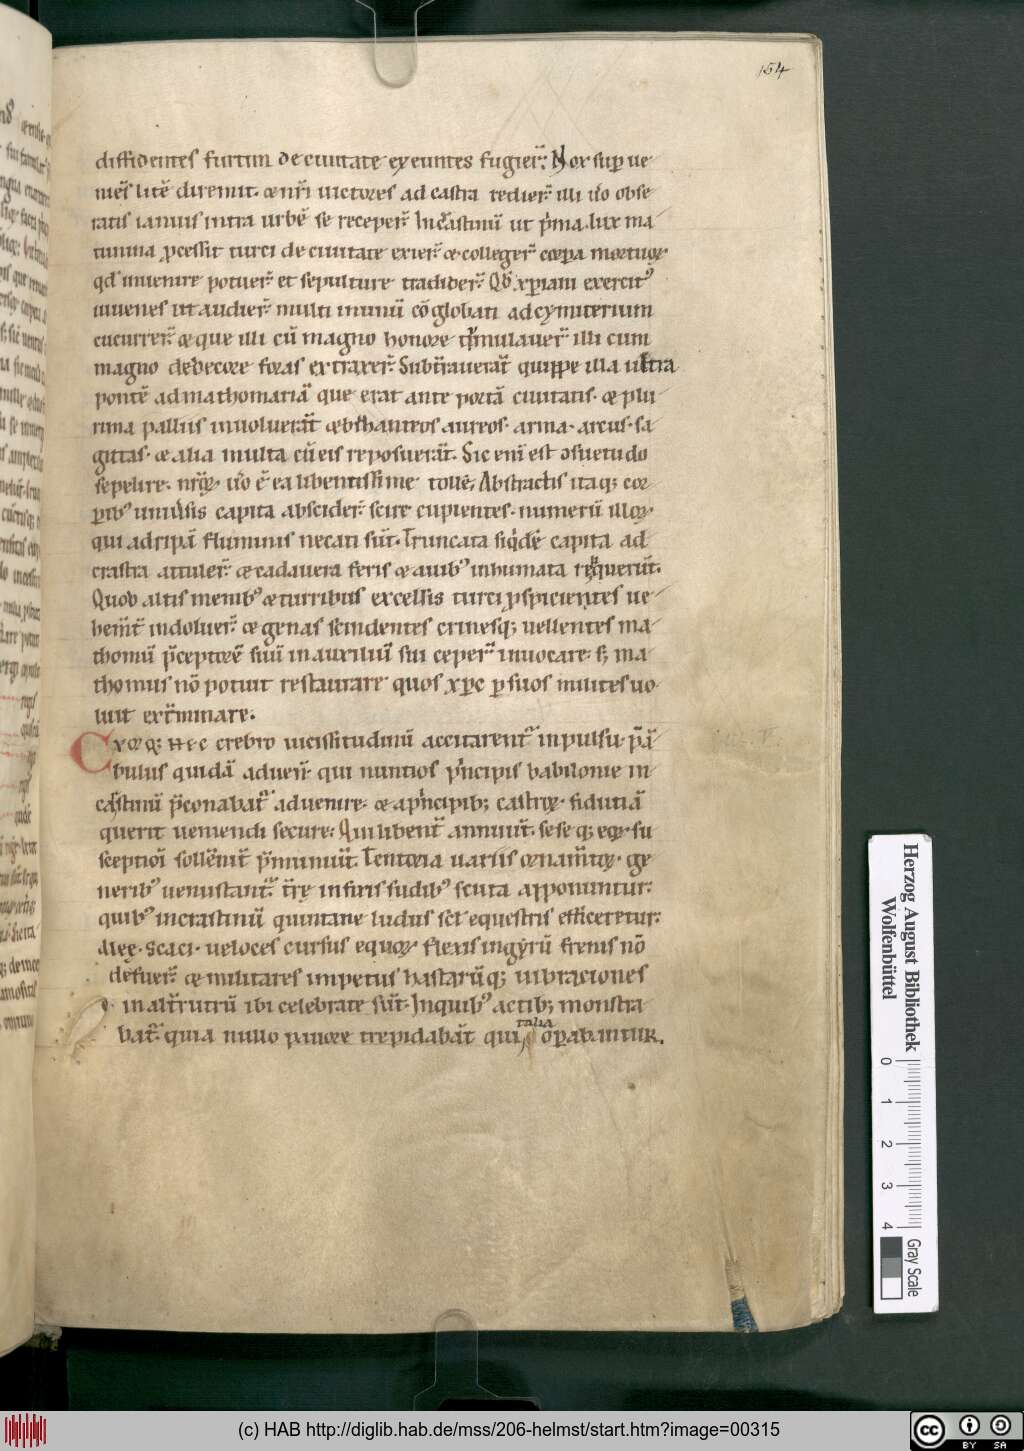 154
diffidentes furtim de ciuitate exeuntes fugier̄. Nox sup ue
niēs litē diremit. & nr̄i uictores ad castra redier̄. illi ũo obse
ratis ianuis intra urbē se receper̄. In crastinū ut p̃ma lux ma
tutina ꝓcessit turci de ciuitate exier̄ & colleger̄ corpa mortuoꝝ
qd inuenire potuer̄ et sepulture tradider̄. Qđ xp̃iani exercitꝰ
iuuenes ut audier̄ multi in unū cōglobati ad cymiterium
cucurrer̄ & que illi cū magno honore tumulauer̄ illi cum
magno dedecore foras extraxer̄. Subt̃rauerāt quippe illa ultra
pontē ad mathomariā que erat ante portā ciuitatis. & plu
rima palliis inuoluerāt & bisanteos aureos. arma. arcus. sa
gittas. & alia multa cū eis reposuerāt. Sic eni est ↄsuetudo
sepelire. nr̄oꝝ ũo ē ea libentissime tolle. Abstractis itaq; cor
pibꝰ uniũsis capita abscider̄ scire cupientes. numerū illoꝝ
qui ad ripā fluminis necati sūt. Truncata siq̇dē capita ad
crastra attuler̄ & cadauera feris & auibꝰ inhumata reliquerūt.
Quod altis menibꝰ & turribus excelsis turci ꝓspicientes ue
hem̄t̄ indoluer̄ & genas scindentes crinesq; uellentes ma
thomū p̄ceptorē suū in auxiliū sui ceper̄ inuocare. s; ma
thomus nō potuit restaurare quos xp̄c p suos milites uo
luit ext̃minare.
Cxq; hec crebro uicissitudinū accitarent᷑ inpulsu. p̄ā
bulus quidā aduen̄ qui nuntios p̃ncipis babilonie in
castinū p̄conabat᷑ aduenire. & a p̃ncipib; castroꝝ fidutiā
querit ueniendi secure. Qui libent᷑ annuūt. sese q; eoꝝ su
sceptioi sollēnit᷑ p̄muniūt. Tentoria uariis ornam̄toꝝ ge
neribꝰ uenustant᷑. t̃rę infixis sudibꝰ scuta apponuntur.
quibꝰ in crastinū quintane ludus scł equestris efficeretur.
Aleę. Scaci. ueloces cursus equoꝝ flexis in gyrū frenis nō
defuer̄ & militares impetus hastarūq; uibraciones
in alt̃rutrū ibi celebrate sūt. In quibꝰ actib; monstra
bat᷑ quia nullo pauore trepidabāt qui talia opabantur.
Herzog August Bibliothek
Wolfenbüttel
0 1 2 3 4
Gray Scale
(c) HAB http://diglib.hab.de/mss/206-helmst/start.htm?image=00315
cc BY SA